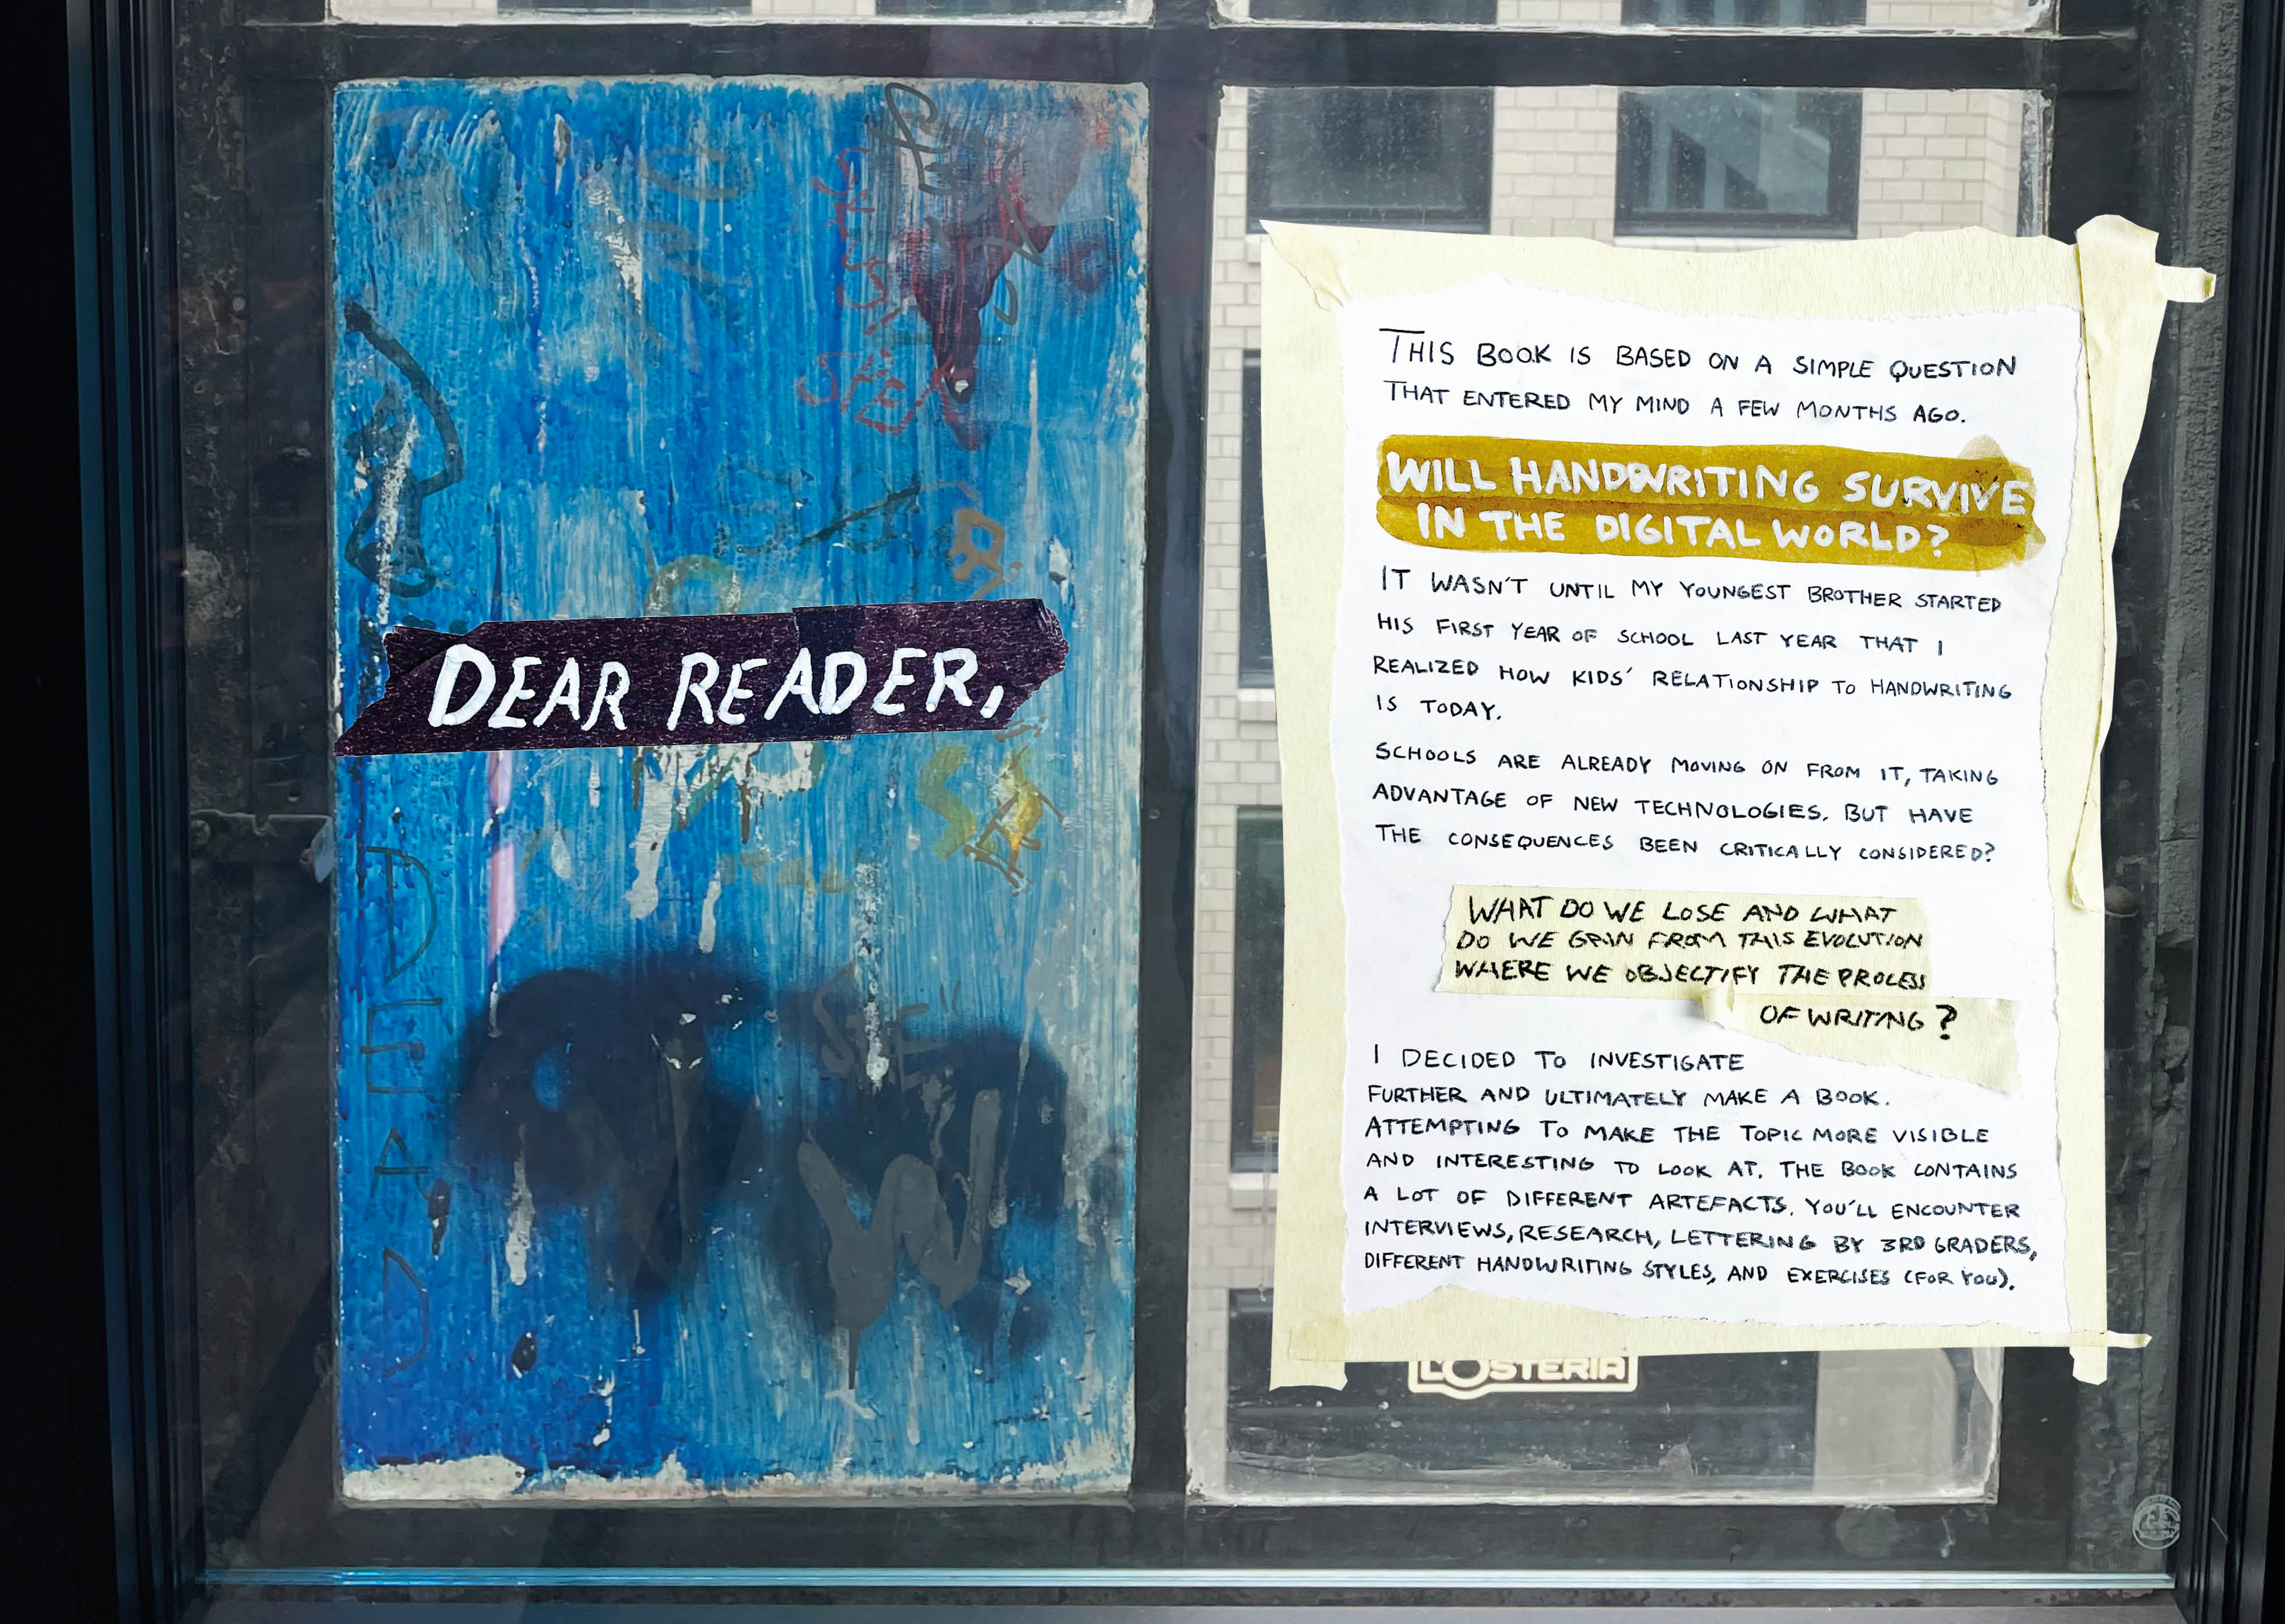 DEAR READER,
DEAD
THIS BOOK IS BASED ON A SIMPLE QUESTION
THAT ENTERED MY MIND A FEW MONTHS AGO.
WILL HANDWRITING SURVIVE
IN THE DIGITAL WORLD?
IT WASN'T UNTIL MY YOUNGEST BROTHER STARTED
HIS FIRST YEAR OF SCHOOL LAST YEAR THAT I
REALIZED HOW KIDS' RELATIONSHIP TO HANDWRITING
IS TODAY.
SCHOOLS ARE ALREADY MOVING ON FROM IT, TAKING
ADVANTAGE OF NEW TECHNOLOGIES. BUT HAVE
THE CONSEQUENCES BEEN CRITICALLY CONSIDERED?
WHAT DO WE LOSE AND WHAT
DO WE GAIN FROM THIS EVOLUTION
WHERE WE OBJECTIFY THE PROCESS
OF WRITING?
I DECIDED TO INVESTIGATE
FURTHER AND ULTIMATELY MAKE A BOOK.
ATTEMPTING TO MAKE THE TOPIC MORE VISIBLE
AND INTERESTING TO LOOK AT. THE BOOK CONTAINS
A LOT OF DIFFERENT ARTEFACTS. YOU'LL ENCOUNTER
INTERVIEWS, RESEARCH, LETTERING BY 3RD GRADERS,
DIFFERENT HANDWRITING STYLES, AND EXERCISES (FOR YOU).
L'OSTERIA